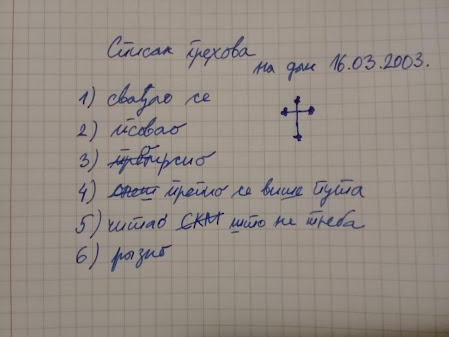 Списак грехова
на дан 16.03.2003.
1) свађао се
2) псовао
3)
4) претио се више пута
5) читао што не треба
6)